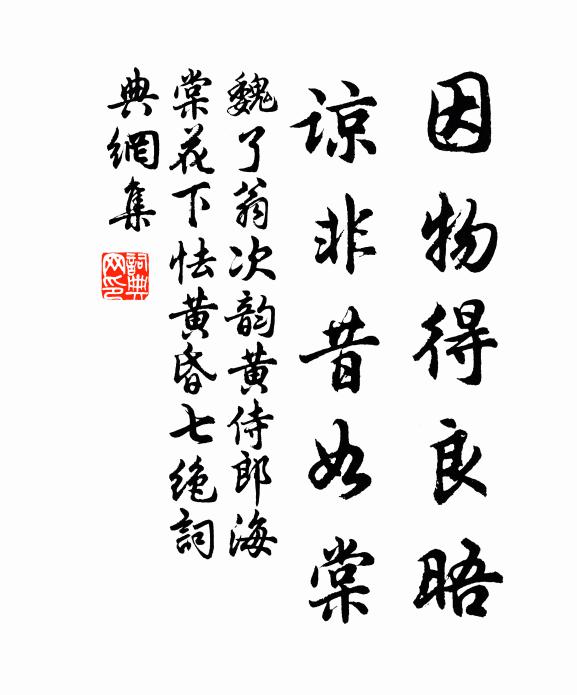 因物得良晤
諒非昔如棠
魏了翁次韵黄侍郎海
棠花下怯黄昏七绝詞
典網集
詞典网印